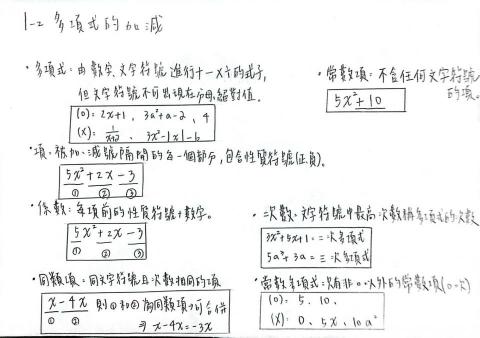 1-2 多項式的加減
・多項式：由數字、文字符號進行＋－×÷的式子，
但文字符號不可出現在分母、絕對值。
(O)：2x+1、3a²+a-2、4
(X)：1/(x+2)、3x²-|x|-6
・常數項：不含任何文字符號
的項。
5x²+10
・項：被加、減號隔開的每一個部分，包含性質符號(正負)。
5x²+2x-3
① ② ③
・係數：每項前的性質符號+數字。
5x²+2x-3
① ② ③
・次數：文字符號中最高次數稱多項式的次數
3x²+5x+1=二次多項式
5a³+3a=三次多項式
・同類項：同文字符號且次數相同的項
x-4x 則①和②為同類項→可合併
① ② ⇒ x-4x=-3x
・常數多項式：只有非0以外的常數項(0次)
(O)：5、10、
(X)：0、5x、10a²